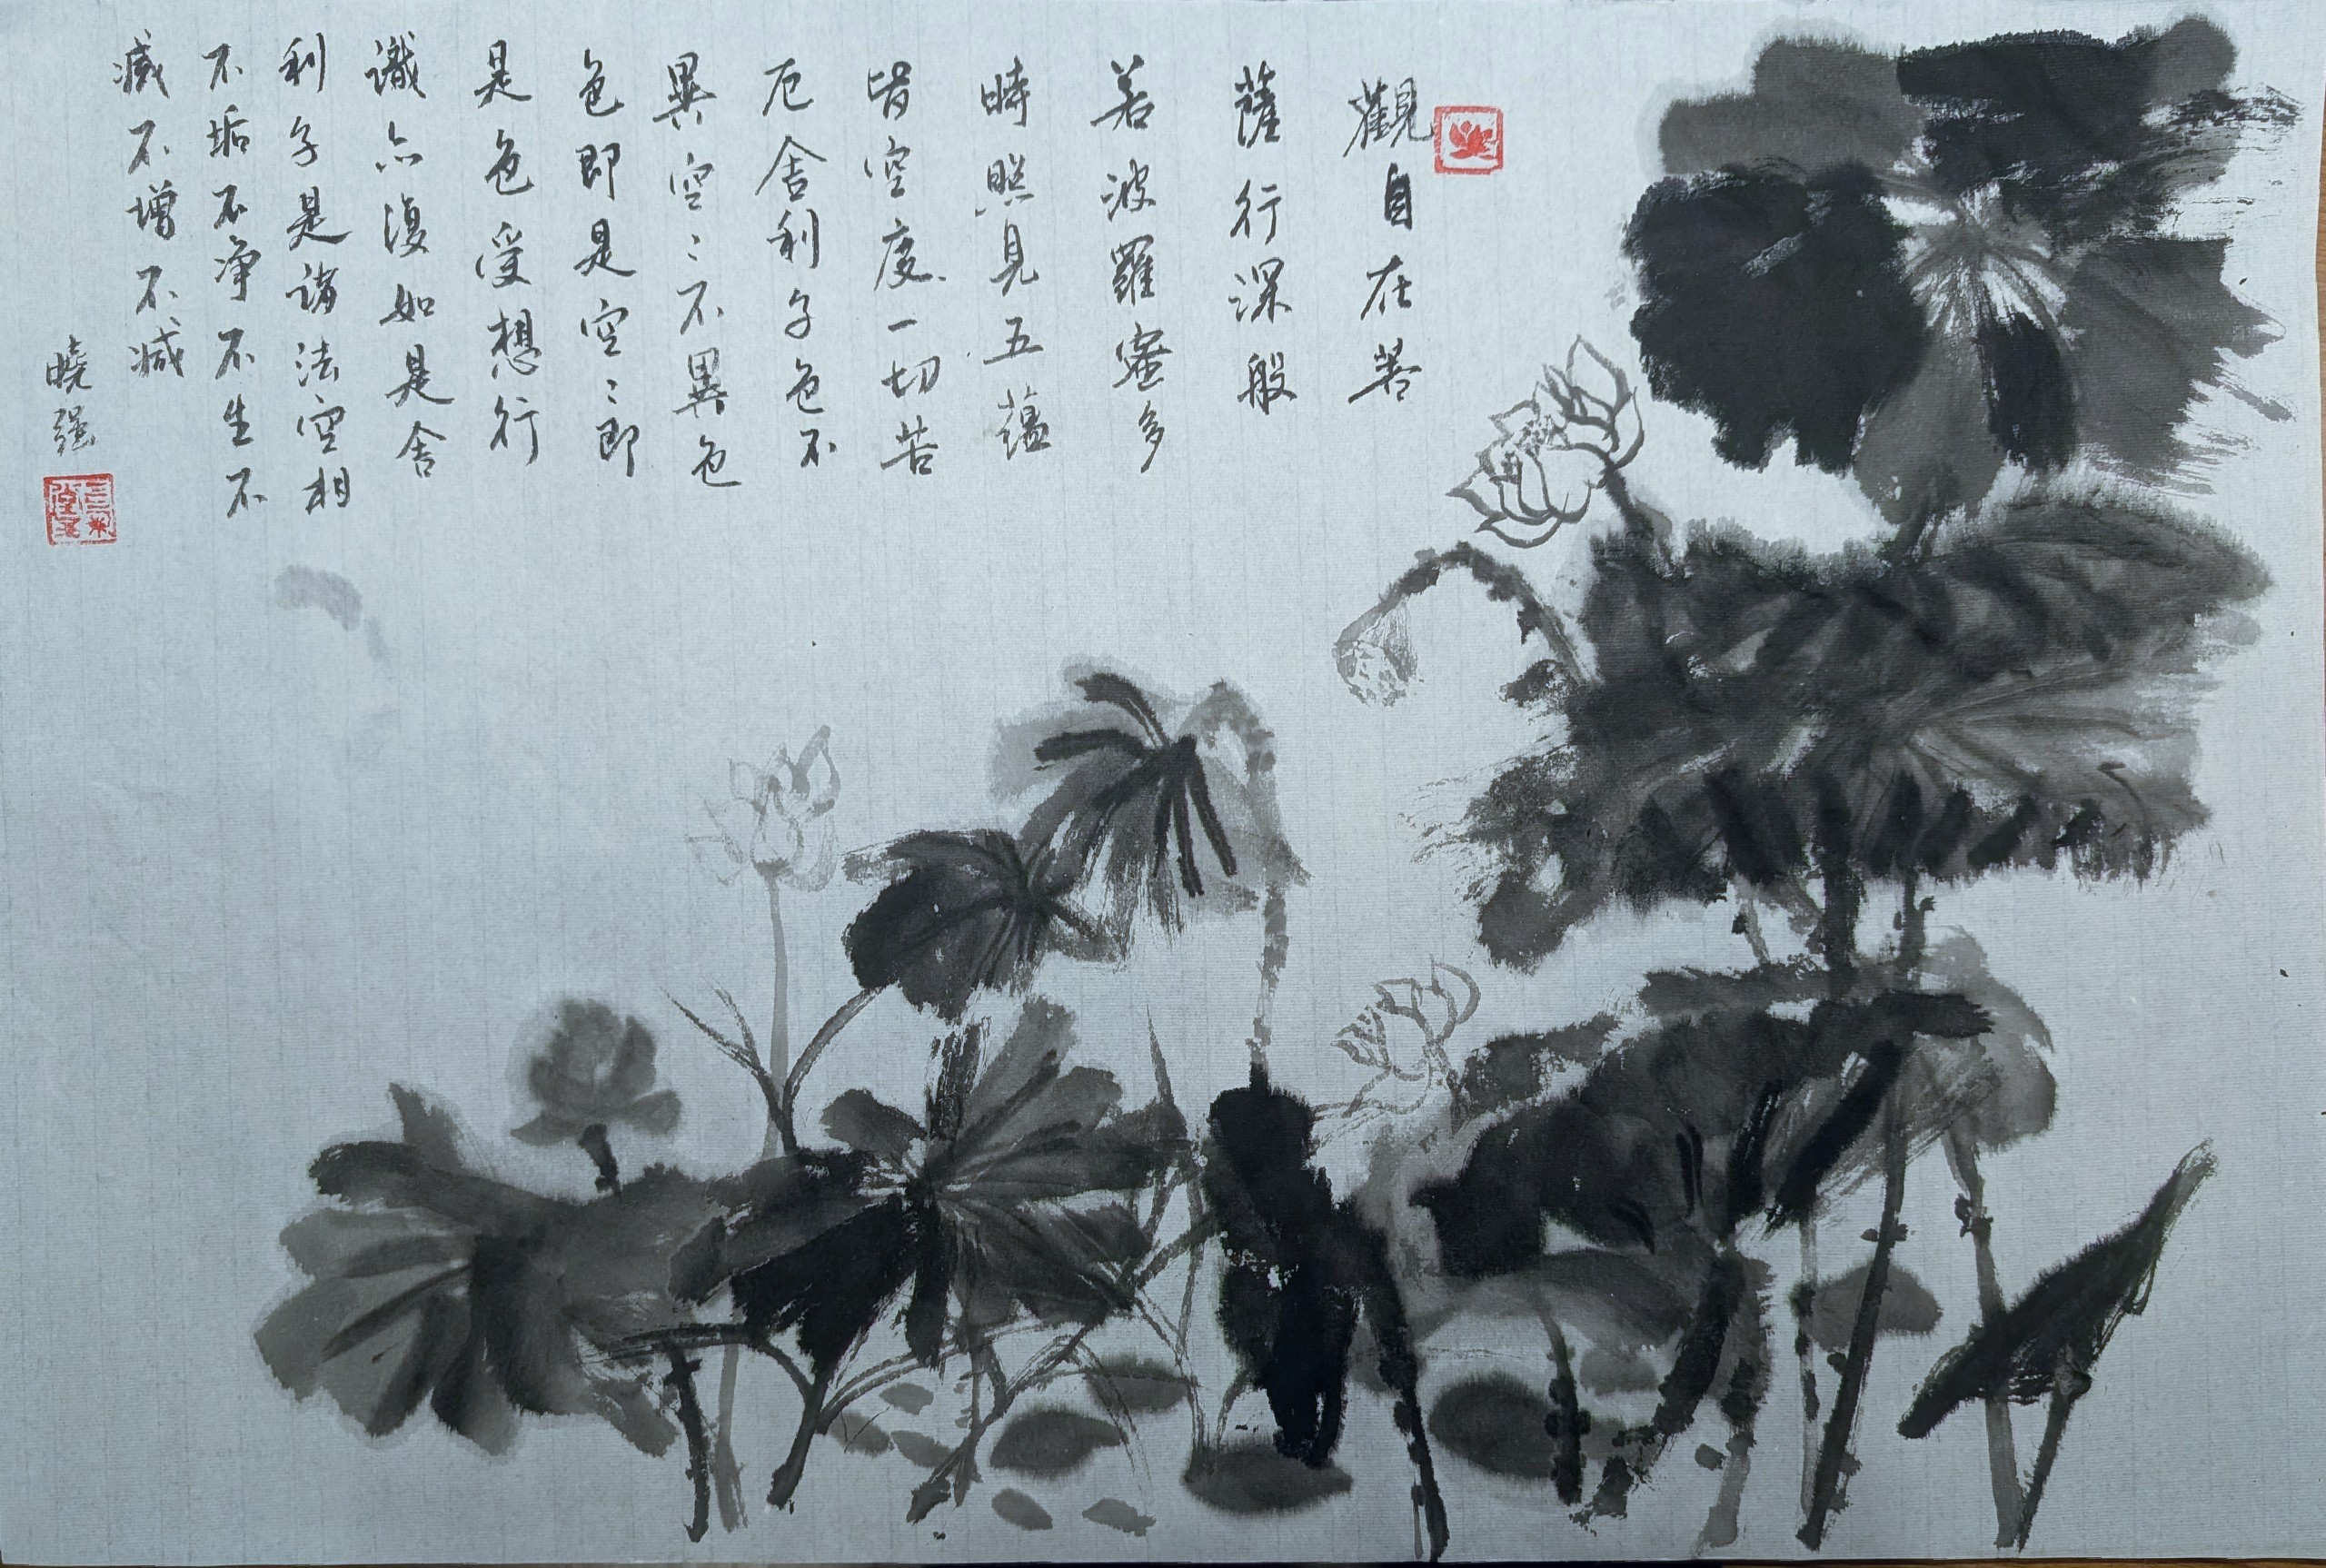 觀自在菩
薩行深般
若波羅蜜多
時照見五蘊
皆空度一切苦
厄舍利子色不
異空〻不異色
色即是空〻即
是色受想行
識亦復如是舍
利子是諸法空相
不垢不净不生不
滅不增不减
曉强